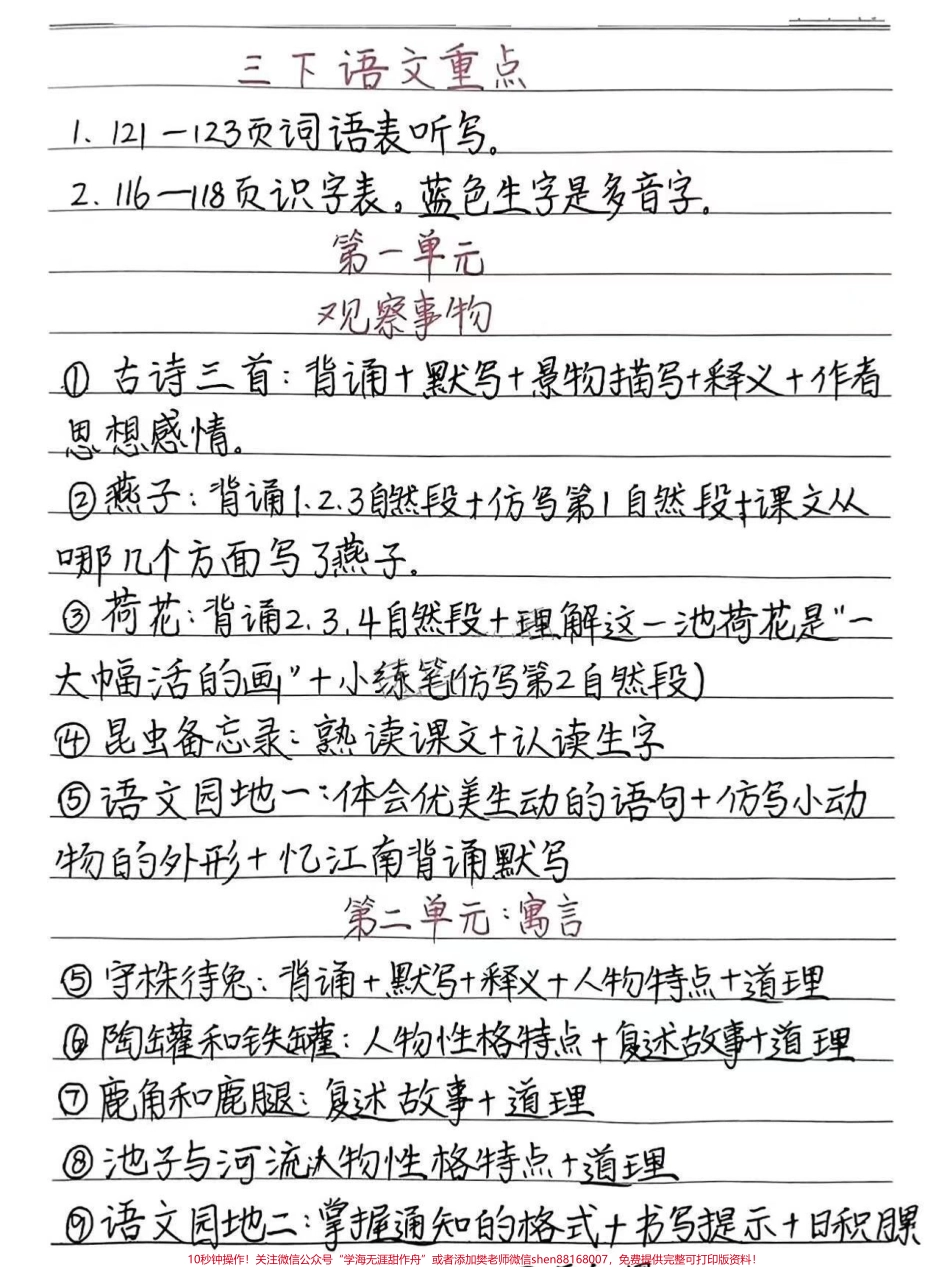 三下语文重点
1. 121—123页词语表听写。
2. 116—118页识字表。蓝色生字是多音字。
第一单元
观察事物
① 古诗三首：背诵+默写+景物描写+释义+作者
思想感情。
②燕子：背诵1.2.3自然段+仿写第1自然段+课文从
哪几个方面写了燕子.
③荷花：背诵2.3.4自然段+理解这一池荷花是"一
大幅活的画"+小练笔(仿写第2自然段)
④昆虫备忘录：熟读课文+认读生字
⑤语文园地一：体会优美生动的语句+仿写小动
物的外形+忆江南背诵默写
第二单元：寓言
⑤守株待兔：背诵+默写+释义+人物特点+道理
⑥陶罐和铁罐：人物性格特点+复述故事+道理
⑦鹿角和鹿腿：复述故事+道理
⑧池子与河流：人物性格特点+道理
⑨语文园地二：掌握通知的格式+书写提示+日积月累
10秒钟操作！关注微信公众号“学海无涯甜作舟”或者添加樊老师微信shen88168007，免费提供完整可打印版资料！